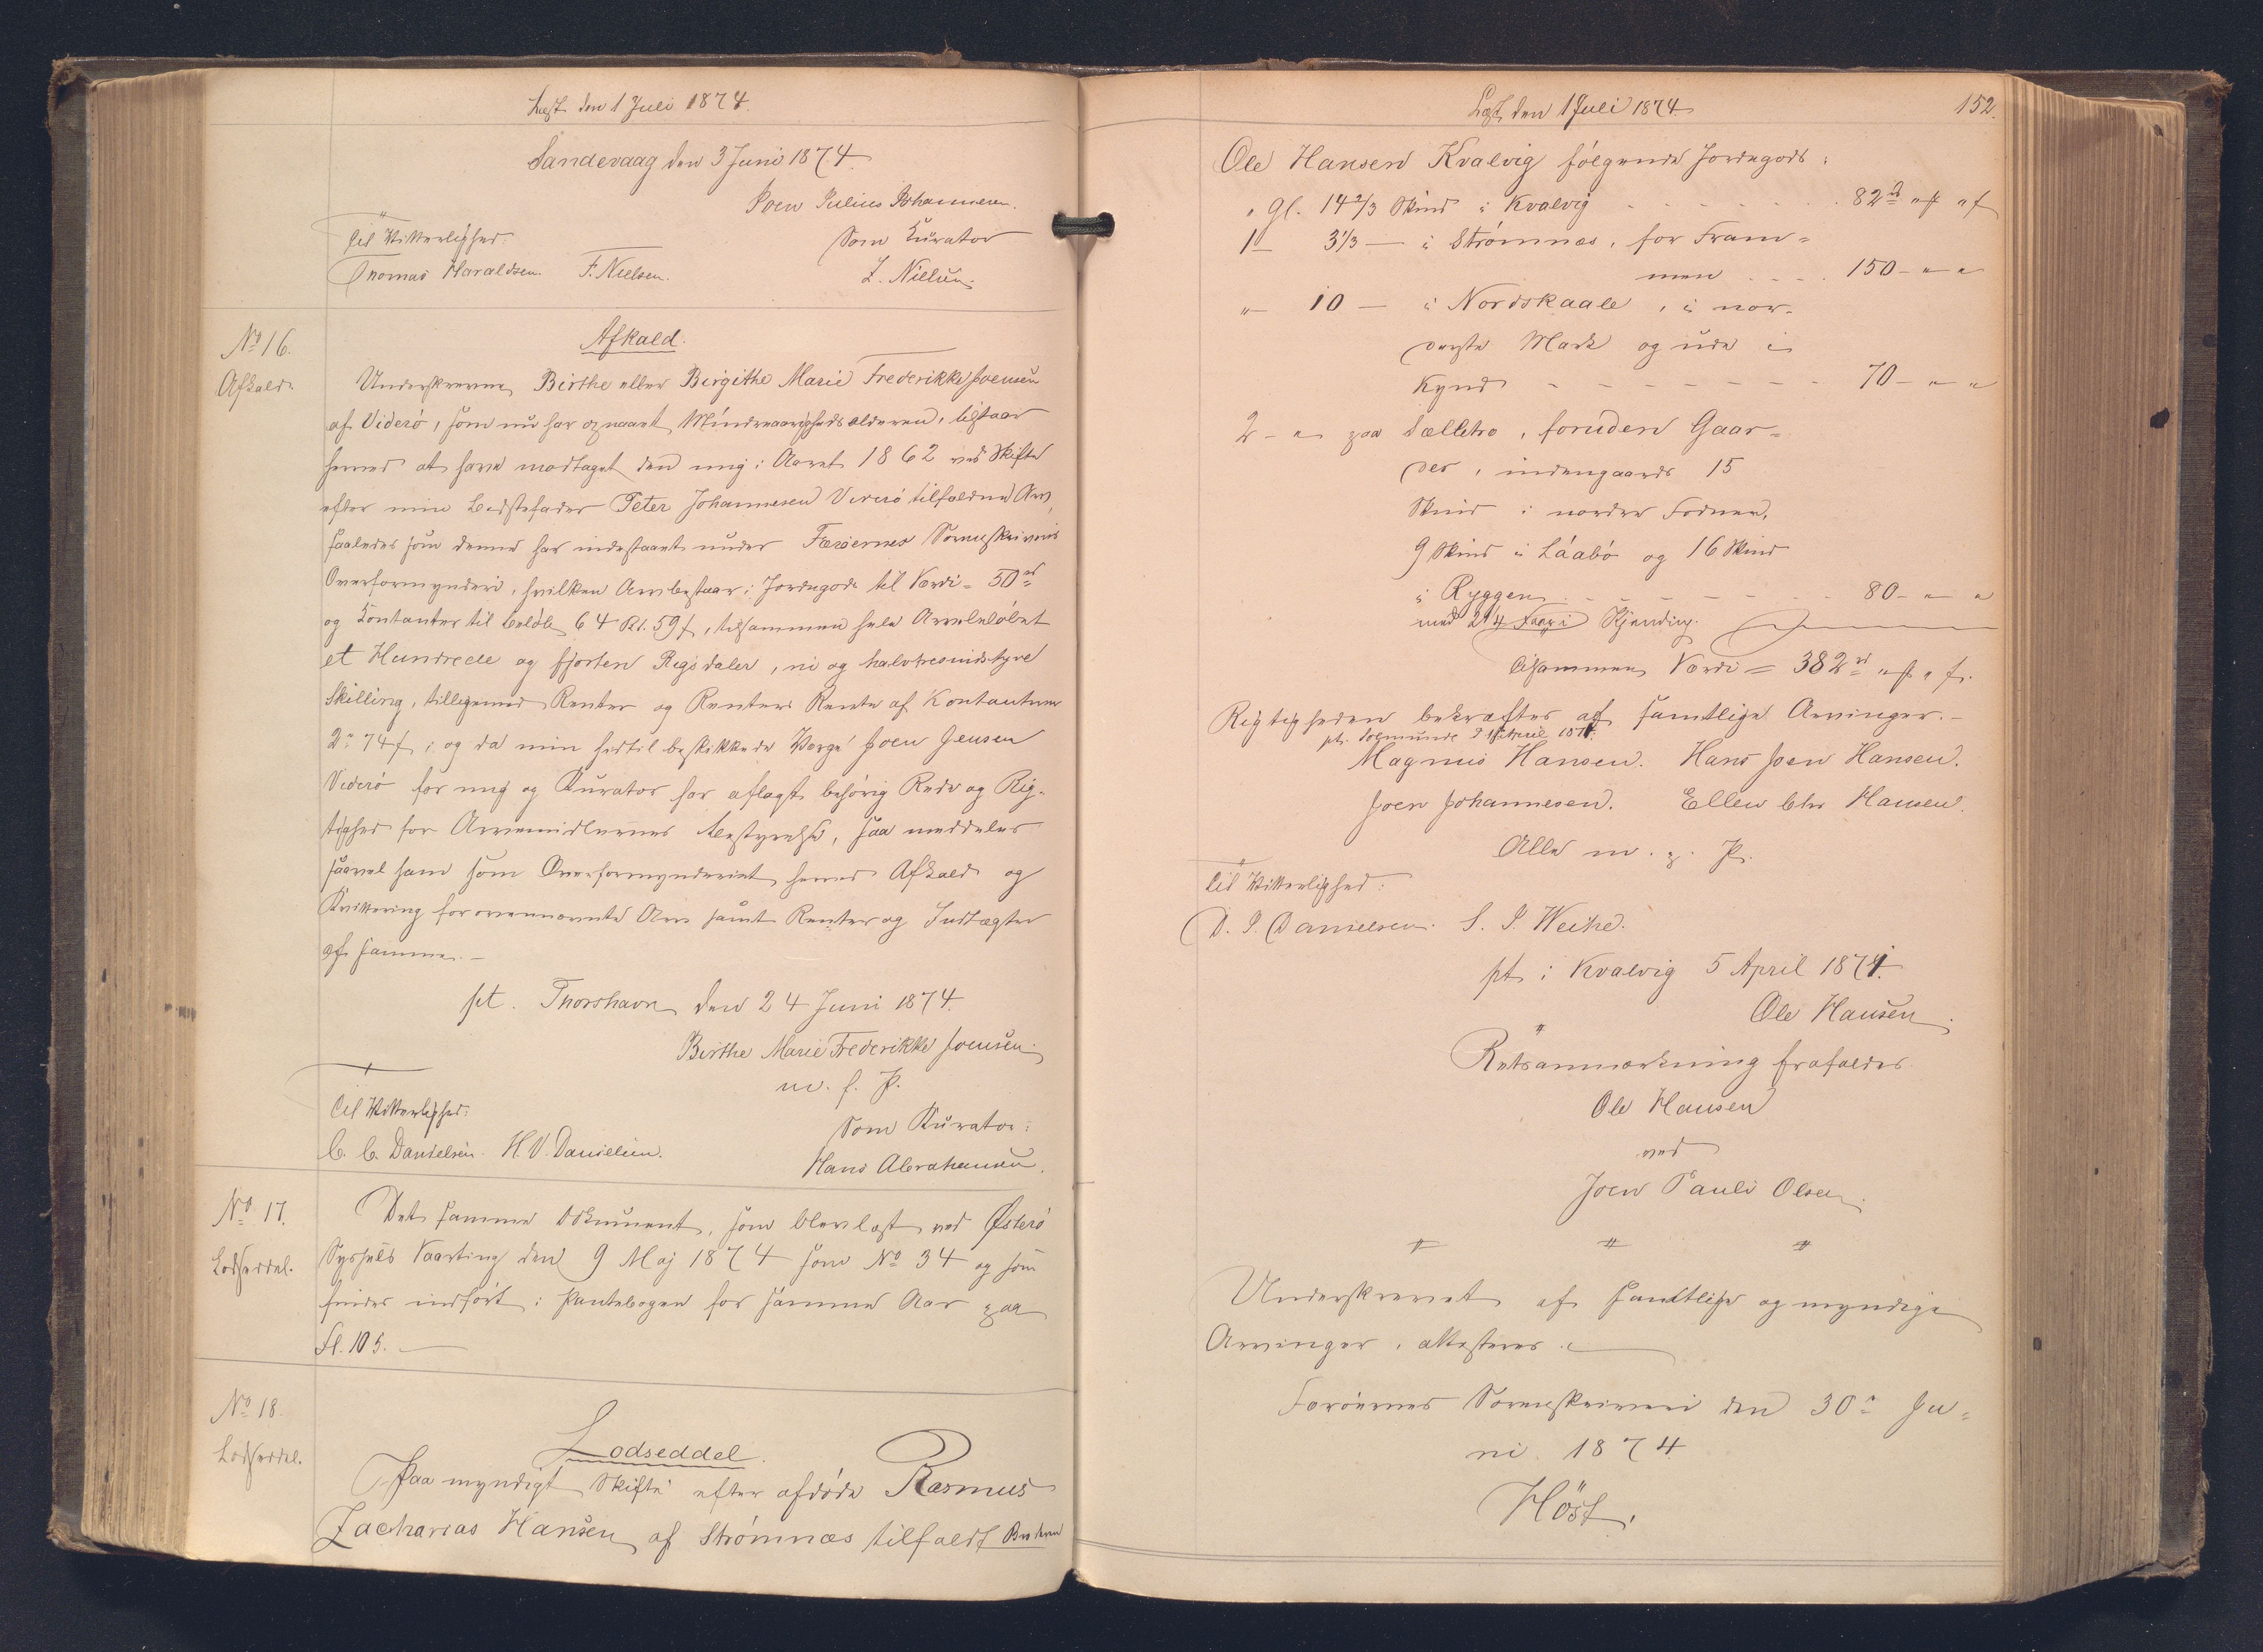 Læst den 1 Juli 1874.
Sandevaag den 3 Juni 1874.
Joen Julius Johannesen.
Til Vitterlighed:
Som Kurator
Thomas Haraldsen. F. Nielsen.
Z. Nielsen.
No 16.
Afkald.
Afkald.
Underskrevne Birthe eller Birgithe Marie Frederikke Joensen
af Viderö, som nu har opnaaet Mindreaarighedsalderen, tilstaar
herved at have modtaget den mig i Aaret 1862 ved Skifte
efter min Bedstefader Peter Johannesen Viderö tilfaldne Arv,
saaledes som denne har indestaaet under Færöernes Sorenskriveris
Overformynderi, hvilken Arv bestaar i Jordegods til Værdi = 50 rd
og Kontanter til Belöb 64 Rd. 59 s, tilsammen hele Arvebelöbet
et Hundrede og fjorten Rigsdaler, ni og halvtresindstyve
Skilling, tilligemed Renter og Renters Rente af Kontanterne
2 rd 74 s; og da min hidtil beskikkede Værge Joen Jensen
Viderö for mig og Kurator har aflagt behörig Rede og Rig-
tighed for Arvemidlernes Bestyrelse, saa meddeles
saavel ham som Overformynderiet herved Afkald og
Kvittering for ovennævnte Arv samt Renter og Indtægter
af samme. -
pt. Thorshavn den 24 Juni 1874.
Birthe Marie Frederikke Joensen.
m. f. P.
Til Vitterlighed:
Som Kurator:
C. C. Danielsen. H. V. Danielsen.
Hans Abrahamsen.
No 17.
Lodseddel.
Det samme Dokument, som blev læst ved Österö
Syssels Vaarting den 9 Maj 1874 som No 34 og som
findes indfört i Pantebogen for samme Aar paa
Fl. 105. -
No 18.
Lodseddel.
Lodseddel.
Paa myndigt Skifte efter afdöde Rasmus
Zacharias Hansen af Strömnæs tilfaldt Broderen
Læst den 1 Juli 1874.
152.
Ole Hansen Kvalvig fölgende Jordegods:
" Gl. 14 2/3 Skind i Kvalvig - - - - - 82 rd " " s
1 - 3 1/3 - i Strömnæs, for Fram=
men - - - 150 - " "
" - 10 - i Nordskaale, i nor-
derste Mark og ude i
Kynd - - - - - - - 70 - " "
2 - " paa Sælletro, foruden Gaar=
des, indengaards 15
Skind i norder Fodnen,
9 Skind i Láabö og 16 Skind
i Ryggen - - - - - - - 80 - " "
med 2 1/4 Faar i Hjending.
tilsammen Værdi = 382 rd " " s.
Rigtigheden bekræftes af samtlige Arvinger. -
Magnus Hansen. Hans Joen Hansen.
Joen Johannesen. Ellen Chr Hansen.
Alle m. p. P.
Til Vitterlighed:
D. P. Danielsen. S. P. Weihe.
pt i Kvalvig 5 April 1874.
Ole Hansen.
Retsanmærkning frafaldes
Ole Hansen
ved
Joen Pauli Olsen.
Underskrevet af samtlige og myndige
Arvinger, attesteres.
Færöernes Sorenskriveri den 30 Ju=
ni 1874
Höst.